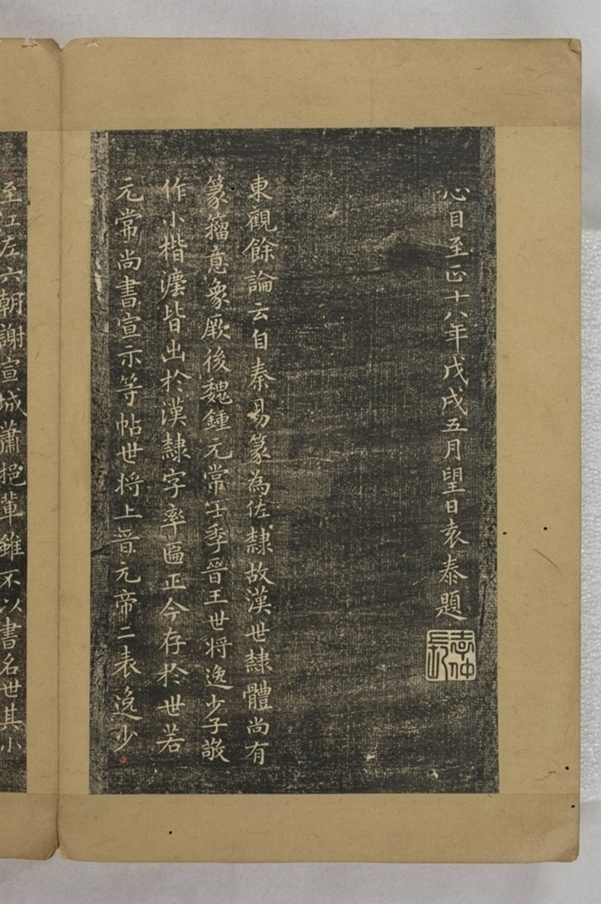 心目至正十八年戊戌五月望日袁泰題
東觀餘論云自秦易篆為佐隸故漢世隸體尚有
篆籀意象厥後魏鍾元常士季晉王世將逸少子敬
作小楷灋皆出於漢隸字率匾正今存於世若
元常尚書宣示等帖世將上晉元帝二表逸少
至江左六朝謝宣城蕭挹輩雖不以書名世其小